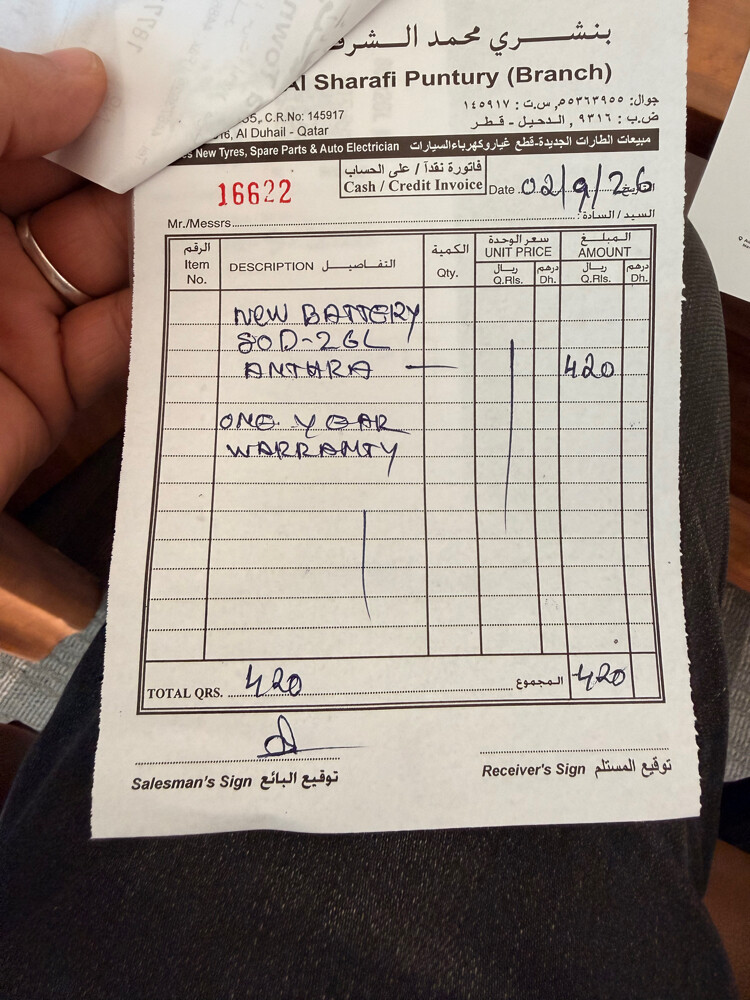 بنشـــري محمد الـــشرف
Al Sharafi Puntury (Branch)
جوال: ٥٥٣٦٣٩٥٥, س.ت: ١٤٥٩١٧
ض.ب: ٩٣١٦, الدحيل - قطر
55, C.R.No: 145917
16, Al Duhail - Qatar
es New Tyres, Spare Parts & Auto Electrician مبيعات الطارات الجديدة-قطع غيار وكهرباء السيارات
16622
فاتورة نقداً / على الحساب
Cash / Credit Invoice
Date 02/9/26 التاريخ
Mr./Messrs. السيد / السادة:
الرقم Item No.
DESCRIPTION التفـاصيـــل
الكمية Qty.
سعر الوحدة UNIT PRICE
المـبلـــغ AMOUNT
ريال Q.Rls. درهم Dh. ريال Q.Rls. درهم Dh.
NEW BATTERY
80D-26L
ANTHRA — 420
ONE YEAR
WARRANTY
TOTAL QRS. 420 المجموع 420
Salesman's Sign توقيع البائع
Receiver's Sign توقيع المستلم